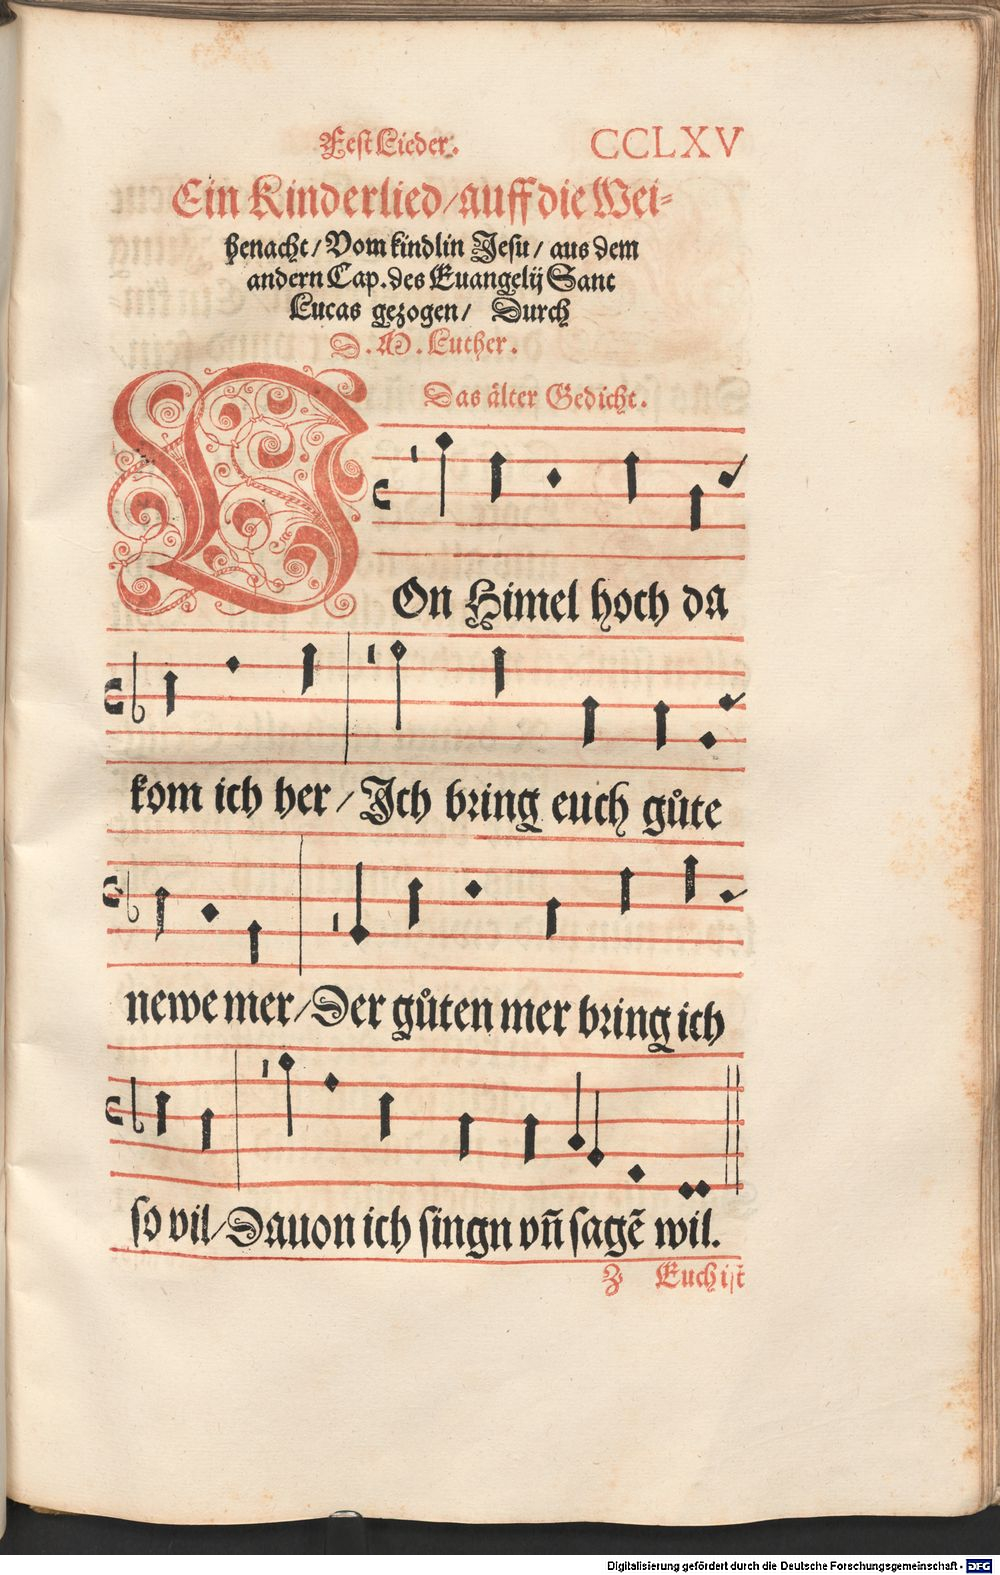 Fest Lieder. CCLXV
Ein Kinderlied / auff die Wei-
henacht / Vom kindlin Jesu / aus dem
andern Cap. des Euangelij Sanct
Lucas gezogen / Durch
D. M. Luther.
Das älter Gedicht.
VOn Himel hoch da
kom ich her / Ich bring euch gůte
newe mer / Der gůten mer bring ich
so vil / Dauon ich singn vñ sagẽ wil.
Z Euch ist
Digitalisierung gefördert durch die Deutsche Forschungsgemeinschaft - DFG